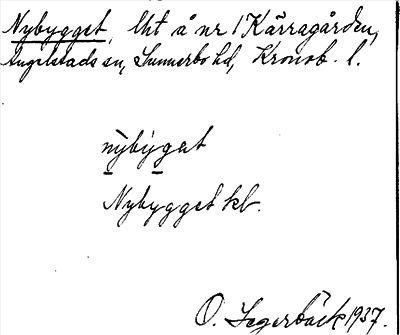 Nybygget, lht å nr 1 Kärragården,
Angelstads sn, Sunnerbo hd, Kronob. l.
nỳbýgat
Nybygget kb.
O. Lagerbäck 1937.